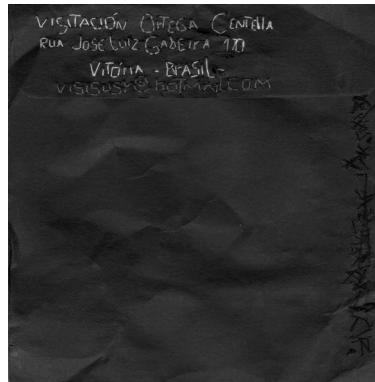 VISITACIÓN ORTEGA CENTELLA
RUA JOSÉ LUIZ GABEIRA 170
VITÓRIA - BRASIL -
VISISUSY@HOTMAIL.COM